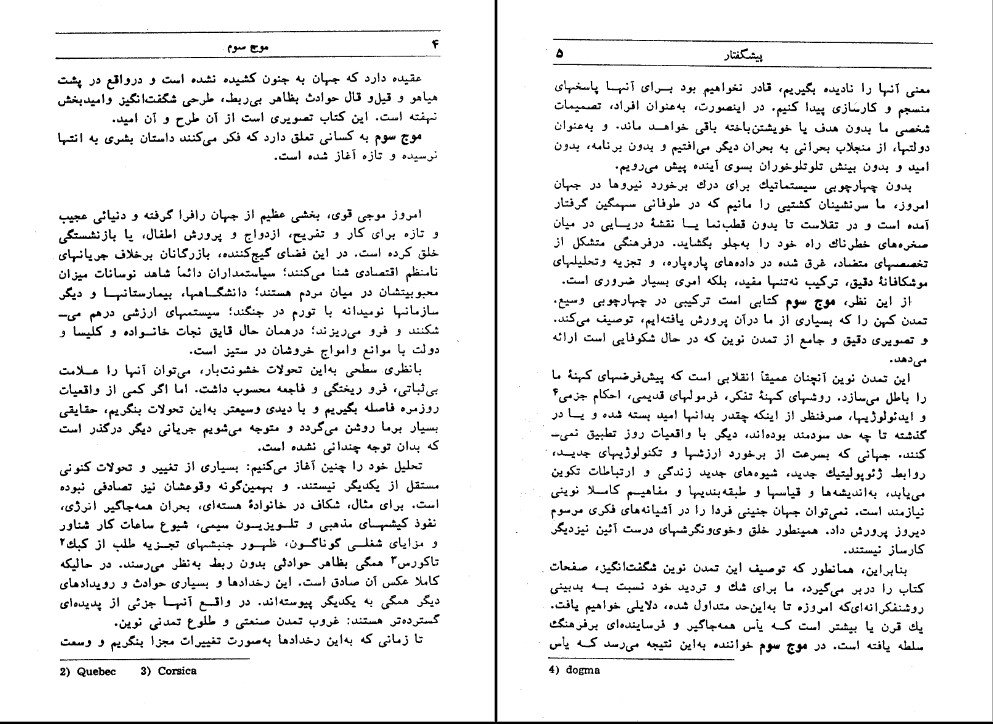 ۴
موج سوم
عقیده دارد که جهان به جنون کشیده نشده است و درواقع در پشت
هیاهو و قیل‌و قال حوادث بظاهر بی‌ربط، طرحی شگفت‌انگیز وامیدبخش
نهفته است. این کتاب تصویری است از آن طرح و آن امید.
موج سوم به کسانی تعلق دارد که فکر می‌کنند داستان بشری به انتها
نرسیده و تازه آغاز شده است.
امروز موجی قوی، بخشی عظیم از جهان رافرا گرفته و دنیائی عجیب
و تازه برای کار و تفریح، ازدواج و پرورش اطفال، یا بازنشستگی
خلق کرده است. در این فضای گیج‌کننده، بازرگانان برخلاف جریانهای
نامنظم اقتصادی شنا می‌کنند؛ سیاستمداران دائماً شاهد نوسانات میزان
محبوبیتشان در میان مردم هستند؛ دانشگاهها، بیمارستانها و دیگر
سازمانها نومیدانه با تورم در جنگند؛ سیستمهای ارزشی درهم می‌ـ
شکنند و فرو می‌ریزند؛ درهمان حال قایق نجات خانواده و کلیسا و
دولت با موانع وامواج خروشان در ستیز است.
بانظری سطحی به‌این تحولات خشونت‌بار، می‌توان آنها را علامت
بی‌ثباتی، فرو ریختگی و فاجعه محسوب داشت. اما اگر کمی از واقعیات
روزمره فاصله بگیریم و با دیدی وسیعتر به‌این تحولات بنگریم، حقایقی
بسیار برما روشن می‌گردد و متوجه می‌شویم جریانی دیگر درگذر است
که بدان توجه چندانی نشده است.
تحلیل خود را چنین آغاز می‌کنیم: بسیاری از تغییر و تحولات کنونی
مستقل از یکدیگر نیستند. و بهمین‌گونه وقوعشان نیز تصادفی نبوده
است. برای مثال، شکاف در خانوادهٔ هسته‌ای، بحران همه‌جاگیر انرژی،
نفوذ کیشهای مذهبی و تلویزیون سیمی، شیوع ساعات کار شناور
و مزایای شغلی گوناگون، ظهور جنبشهای تجزیه طلب از کبک۲
تاکورس۳ همگی بظاهر حوادثی بدون ربط به‌نظر می‌رسند. در حالیکه
کاملا عکس آن صادق است. این رخدادها و بسیاری حوادث و رویدادهای
دیگر همگی به یکدیگر پیوسته‌اند. در واقع آنها جزئی از پدیده‌ای
گسترده‌تر هستند: غروب تمدن صنعتی و طلوع تمدنی نوین.
تا زمانی که به‌این رخدادها به‌صورت تغییرات مجزا بنگریم و وسعت
2) Quebec 3) Corsica
پیشگفتار
۵
معنی آنها را نادیده بگیریم، قادر نخواهیم بود برای آنها پاسخهای
منسجم و کارسازی پیدا کنیم. در اینصورت، به‌عنوان افراد، تصمیمات
شخصی ما بدون هدف یا خویشتن‌باخته باقی خواهد ماند. و به‌عنوان
دولتها، از منجلاب بحرانی به بحران دیگر می‌افتیم و بدون برنامه، بدون
امید و بدون بینش تلوتلوخوران بسوی آینده پیش می‌رویم.
بدون چهارچوبی سیستماتیک برای درک برخورد نیروها در جهان
امروز، ما سرنشینان کشتیی را مانیم که در طوفانی سهمگین گرفتار
آمده است و در تقلاست تا بدون قطب‌نما یا نقشهٔ دریایی در میان
صخره‌های خطرناک راه خود را به‌جلو بگشاید. درفرهنگی متشکل از
تخصصهای متضاد، غرق شده در داده‌های پاره‌پاره، و تجزیه وتحلیلهای
موشکافانهٔ دقیق، ترکیب نه‌تنها مفید، بلکه امری بسیار ضروری است.
از این نظر، موج سوم کتابی است ترکیبی در چهارچوبی وسیع.
تمدن کهن را که بسیاری از ما درآن پرورش یافته‌ایم، توصیف می‌کند.
و تصویری دقیق و جامع از تمدن نوین که در حال شکوفایی است ارائه
می‌دهد.
این تمدن نوین آنچنان عمیقاً انقلابی است که پیش‌فرضهای کهنهٔ ما
را باطل می‌سازد. روشهای کهنهٔ تفکر، فرمولهای قدیمی، احکام جزمی۴
و ایدئولوژیها، صرفنظر از اینکه چقدر بدانها امید بسته شده و یا در
گذشته تا چه حد سودمند بوده‌اند، دیگر با واقعیات روز تطبیق نمی‌ـ
کنند. جهانی که بسرعت از برخورد ارزشها و تکنولوژیهای جدید،
روابط ژئوپولیتیک جدید، شیوه‌های جدید زندگی و ارتباطات تکوین
می‌یابد، به‌اندیشه‌ها و قیاسها و طبقه‌بندیها و مفاهیم کاملا نوینی
نیازمند است. نمی‌توان جهان جنینی فردا را در آشیانه‌های فکری مرسوم
دیروز پرورش داد. همینطور خلق وخوی‌ونگرشهای درست آئین نیزدیگر
کارساز نیستند.
بنابراین، همانطور که توصیف این تمدن نوین شگفت‌انگیز، صفحات
کتاب را دربر می‌گیرد، ما برای شک و تردید خود نسبت به بدبینی
روشنفکرانه‌ای‌که امروزه تا به‌این‌حد متداول شده، دلایلی خواهیم یافت.
یک قرن یا بیشتر است که یأس همه‌جاگیر و فرساینده‌ای برفرهنگ
سلطه یافته است. در موج سوم خواننده به‌این نتیجه می‌رسد که یأس
4) dogma